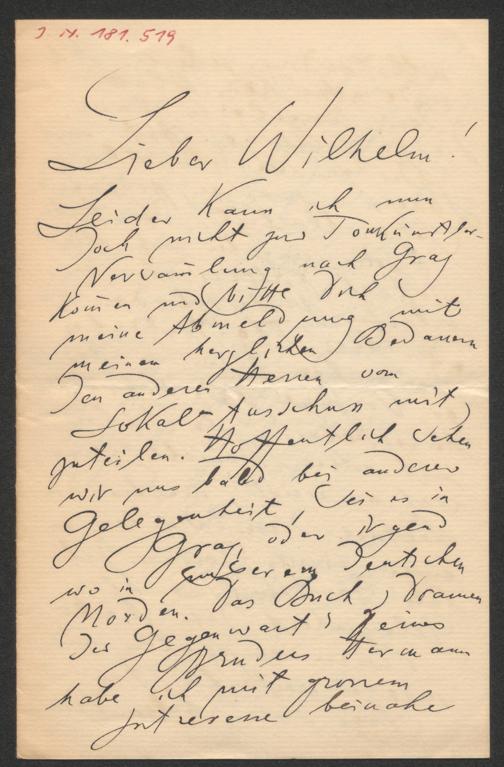 J. N. 181.519
Lieber Wilhelm!
Leider kann ich nun
doch nicht zur Tonkünstler-
Versam̄lung nach Graz
kom̄en und bitte dich
meine Abmeldung mit
meinem herzlichen Bedauern
den anderen Herren vom
Lokal-Ausschuss mit
zuteilen. Hoffentlich sehen
wir uns bald bei anderer
Gelegenheit, sei es in
Graz, oder irgend
wo in unserem deutschen
Norden. Das Buch "Dramen
der Gegenwart" deines
Bruders Hermann
habe ich mit grossem
Interesse beinahe